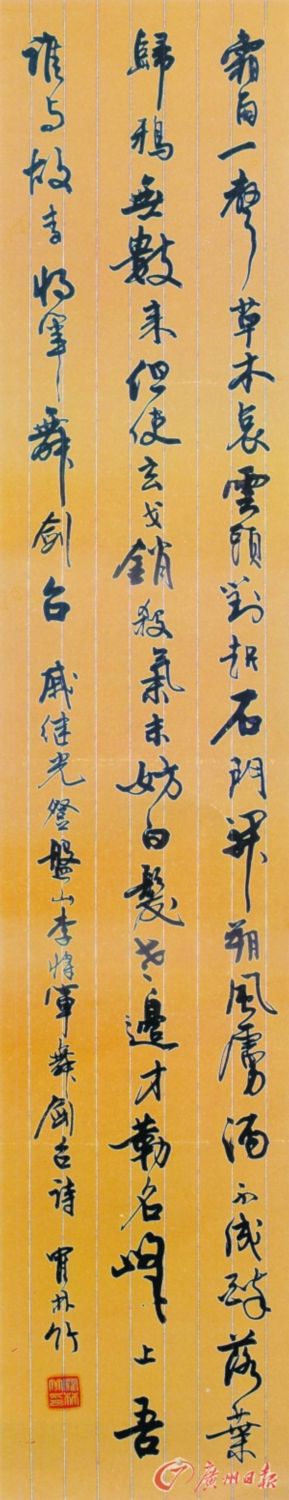 霜角一聲草木哀雲頭對起石門開朔風虜酒不成醉落葉
歸鴉無數来但使玄戈銷殺氣未妨白髮老邊才勒名峰上吾
誰与故李將軍舞劍台 戚继光登盤山李將軍舞劍台詩
廣州日報